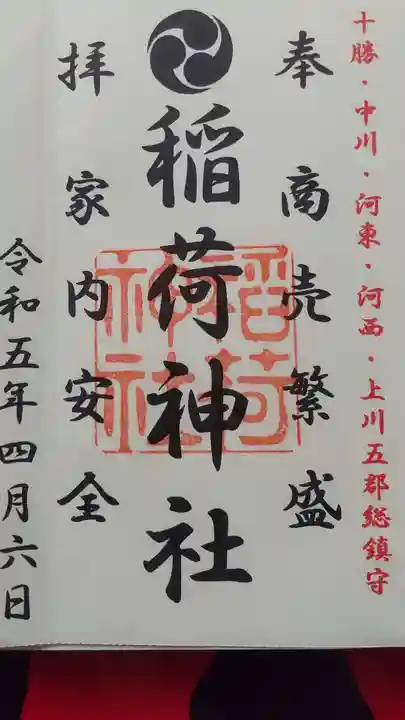 十勝・中川・河東・河西・上川五郡総鎮守
奉商売繁盛
稲荷神社
稲荷神社
拝家内安全
令和五年四月六日